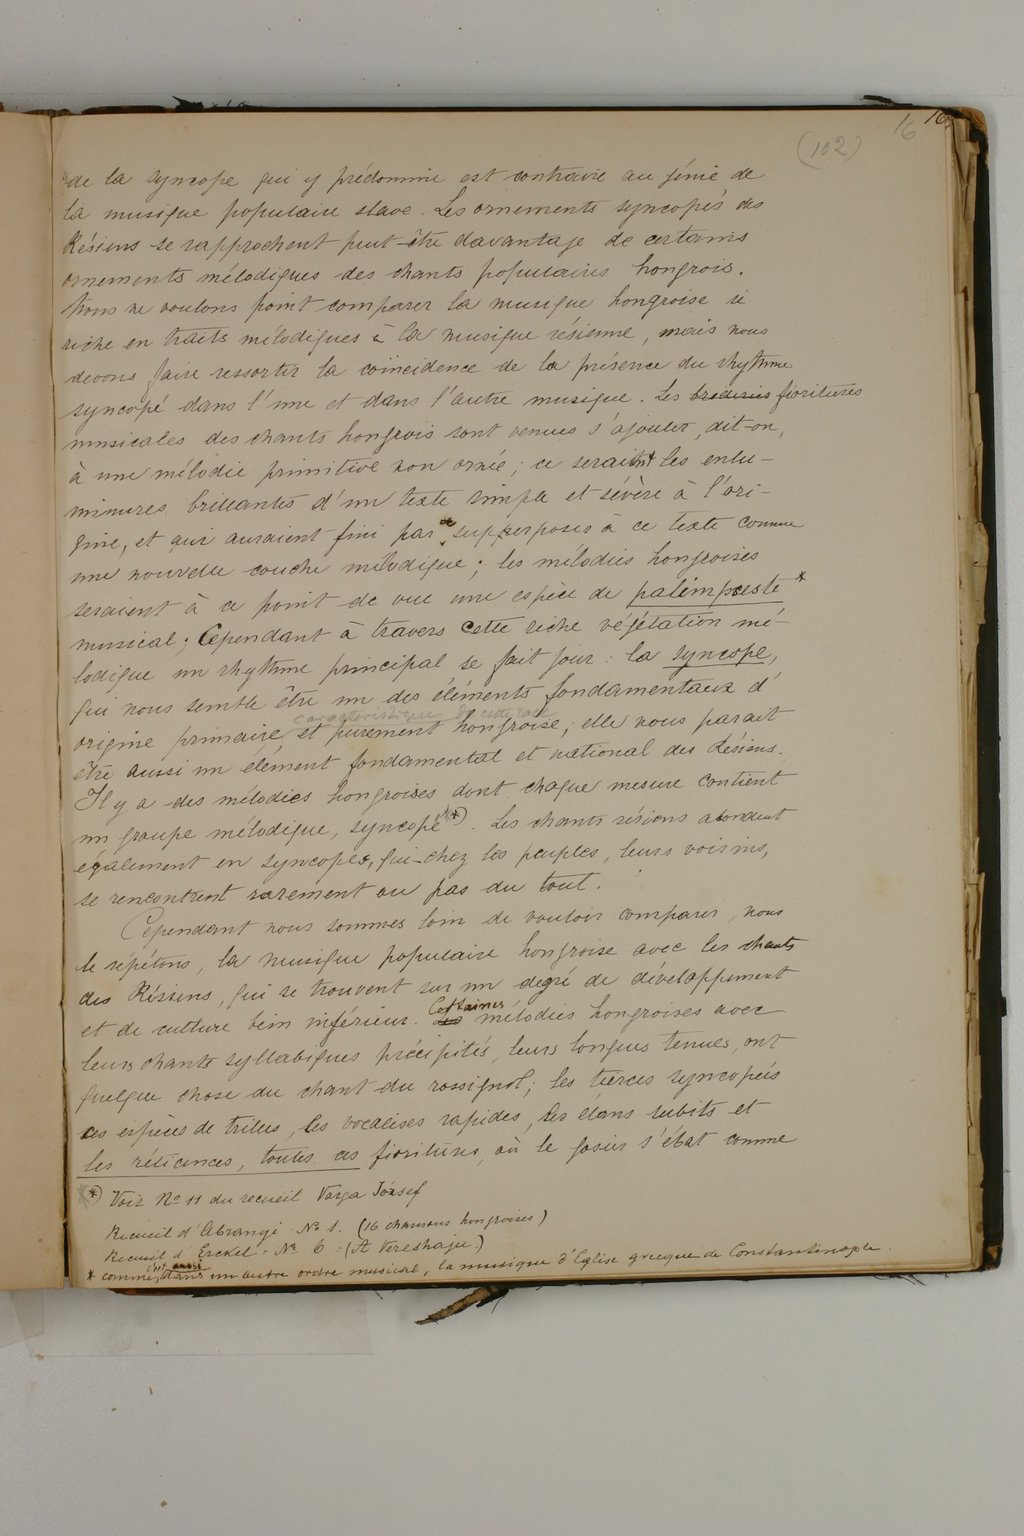 16 16
(102)
de la syncope qui y prédomine est contraire au génie de
la musique populaire slave. Les ornements syncopés des
Résiens se rapprochent peut-être davantage de certains
ornements mélodiques des chants populaires hongrois.
Nous ne voulons point comparer la musique hongroise si
riche en traits mélodiques à la musique résienne, mais nous
devons faire ressortir la coïncidence de la présence du rhythme
syncopé dans l'une et dans l'autre musique. Les broderies fioritures
musicales des chants hongrois sont venues s'ajouter, dit-on,
à une mélodie primitive non ornée; ce seraient les enlu-
minures brillantes d'un texte simple et sévère à l'ori-
gine, et qui auraient fini par se superposer à ce texte comme
une nouvelle couche mélodique; les mélodies hongroises
seraient à ce point de vue une espèce de palimpseste *
musical; Cependant à travers cette riche végétation mé-
lodique un rhythme principal se fait jour: la syncope,
qui nous semble être un des éléments fondamentaux d'
caractéristique de cette race
origine primaire, et purement hongroise; elle nous parait
être aussi un élément fondamental et national des Résiens.
Il y a des mélodies hongroises dont chaque mesure contient
un groupe mélodique, syncopé *). Les chants résiens abondent
également en syncopes, qui chez les peuples, leurs voisins,
se rencontrent rarement ou pas du tout.
Cependant nous sommes loin de vouloir comparer, nous
le répétons, la musique populaire hongroise avec les chants
des Résiens, qui se trouvent sur un degré de développement
et de culture bien inférieur. Les Certaines mélodies hongroises avec
leurs chants syllabiques précipités, leurs longues tenues, ont
quelque chose du chant du rossignol; les tierces syncopées
ces espèces de trilles, les vocalises rapides, les élans subits et
les réticences, toutes ces fioritures, où le gosier s'ébat comme
*) Voir No 11 du recueil Varga József
Recueil d'Abranyi No 1. (16 chansons hongroises)
Recueil d'Erckel: No 6: (A Vereshaju)
* comme, c'est aussi dans un autre ordre musical, la musique d'Eglise grecque de Constantinople.